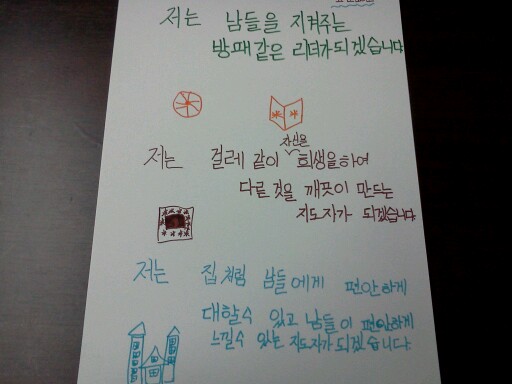 저는 남들을 지켜주는
방패같은 리더가되겠습니다
자신을
저는 걸레 같이 희생을하여
다른 것을 깨끗이 만드는
지도자가 되겠습니다
저는 집처럼 남들에게 편안하게
대할수 있고 남들이 편안하게
느낄수 있는 지도자가되겠습니다